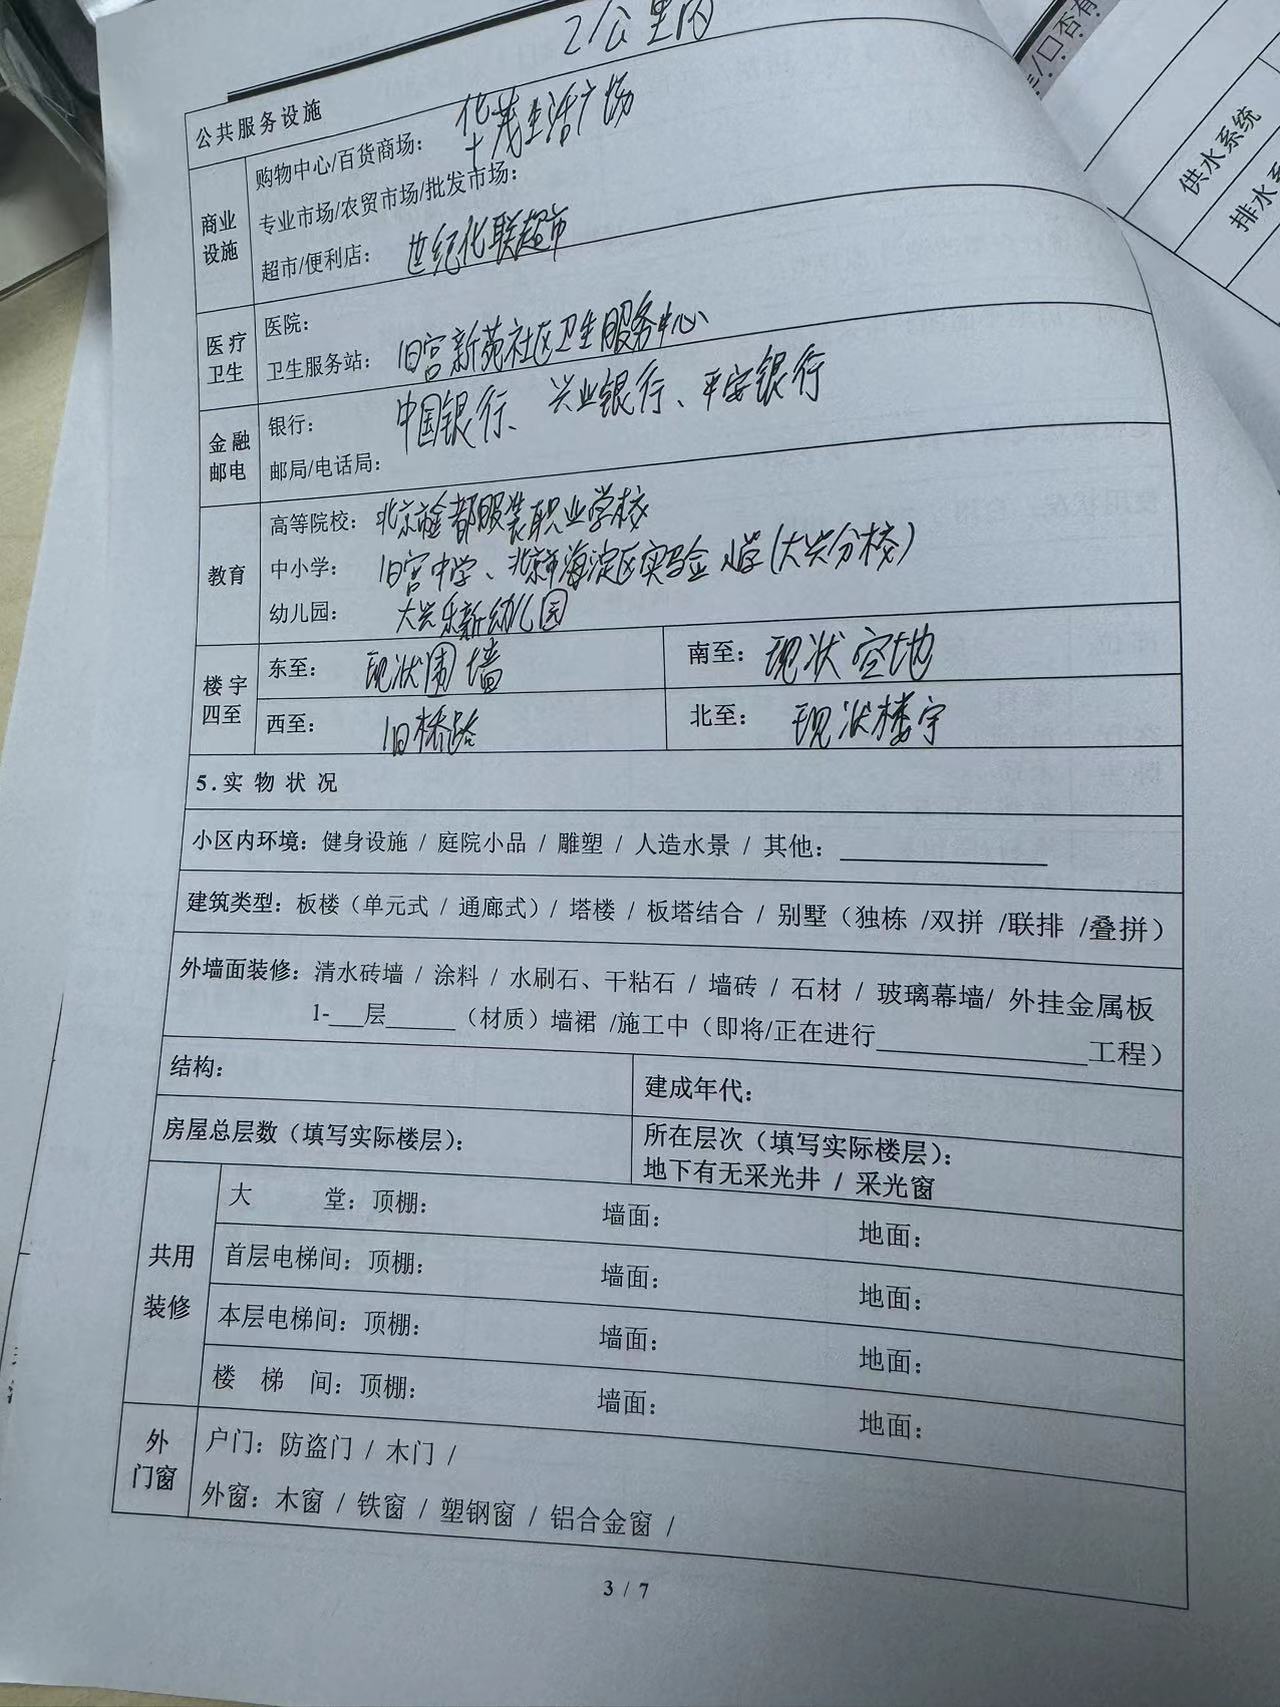 2公里内
公共服务设施
商业设施
购物中心/百货商场：华茂生活广场
专业市场/农贸市场/批发市场：
超市/便利店：世纪华联超市
医疗卫生
医院：
卫生服务站：旧宫新苑社区卫生服务中心
金融邮电
银行：中国银行、兴业银行、平安银行
邮局/电话局：
教育
高等院校：北京市金都服装职业学校
中小学：旧宫中学、北京市海淀区实验小学（大兴分校）
幼儿园：大兴乐新幼儿园
楼宇四至
东至：现状围墙 南至：现状空地
西至：旧桥路 北至：现状楼宇
5.实物状况
小区内环境：健身设施 / 庭院小品 / 雕塑 / 人造水景 / 其他：
建筑类型：板楼（单元式 / 通廊式）/ 塔楼 / 板塔结合 / 别墅（独栋 /双拼 /联排 /叠拼）
外墙面装修：清水砖墙 / 涂料 / 水刷石、干粘石 / 墙砖 / 石材 / 玻璃幕墙/ 外挂金属板
1-___层______（材质）墙裙 /施工中（即将/正在进行__________________工程）
结构： 建成年代：
房屋总层数（填写实际楼层）： 所在层次（填写实际楼层）：
地下有无采光井 / 采光窗
共用装修
大堂：顶棚： 墙面： 地面：
首层电梯间：顶棚： 墙面： 地面：
本层电梯间：顶棚： 墙面： 地面：
楼梯间：顶棚： 墙面： 地面：
外门窗
户门：防盗门 / 木门 /
外窗：木窗 / 铁窗 / 塑钢窗 / 铝合金窗 /
3 / 7
/□否有
供水系统
排水系